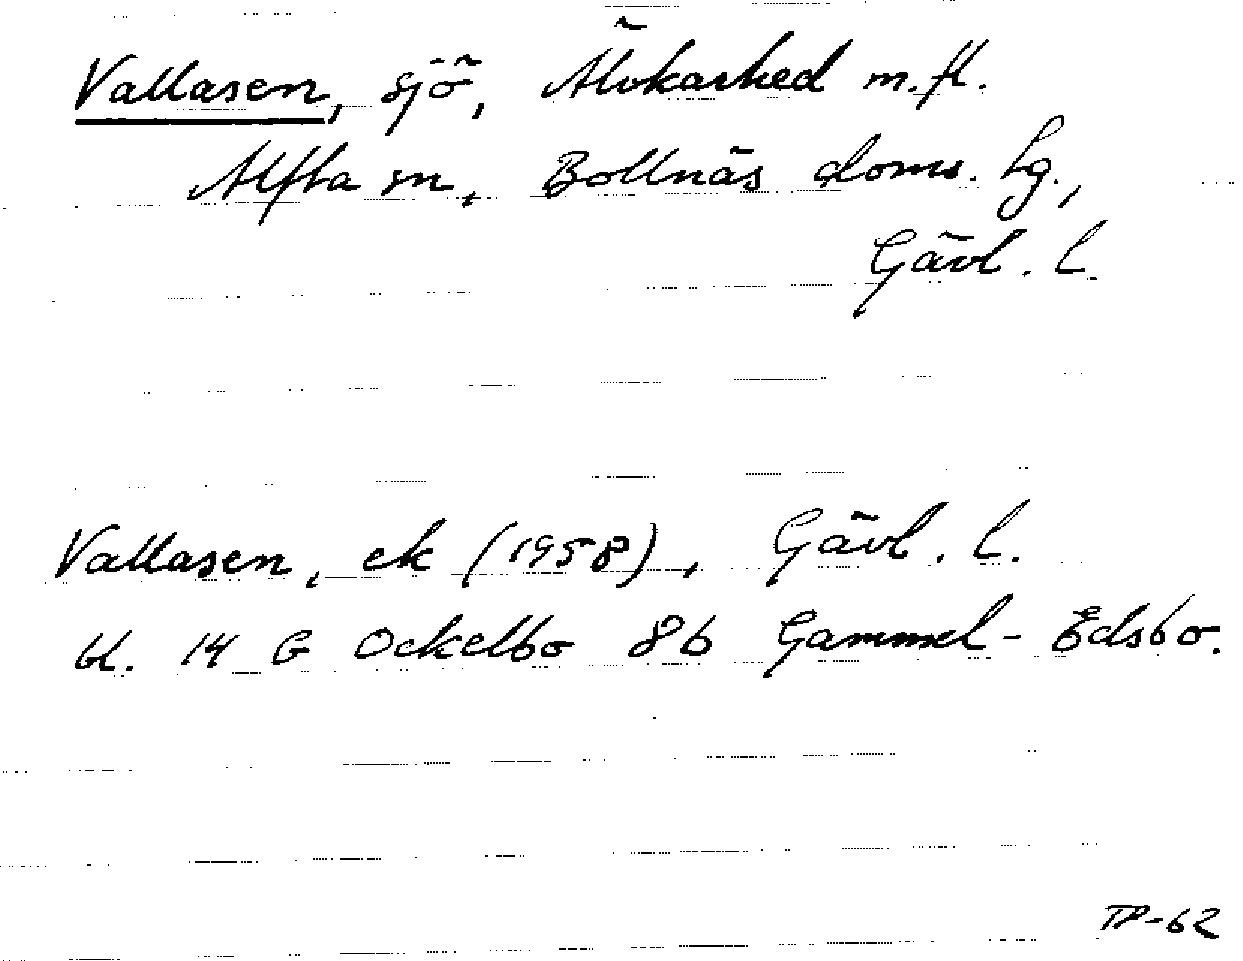 Vallasen, sjö, Älvkarhed m.fl.
Alfta sn, Bollnäs doms. hg.,
Gävl. l.
Vallasen, ek (1958), Gävl. l.
bl. 14 G Ockelbo 8b Gammel-Edsbo.
TP-62